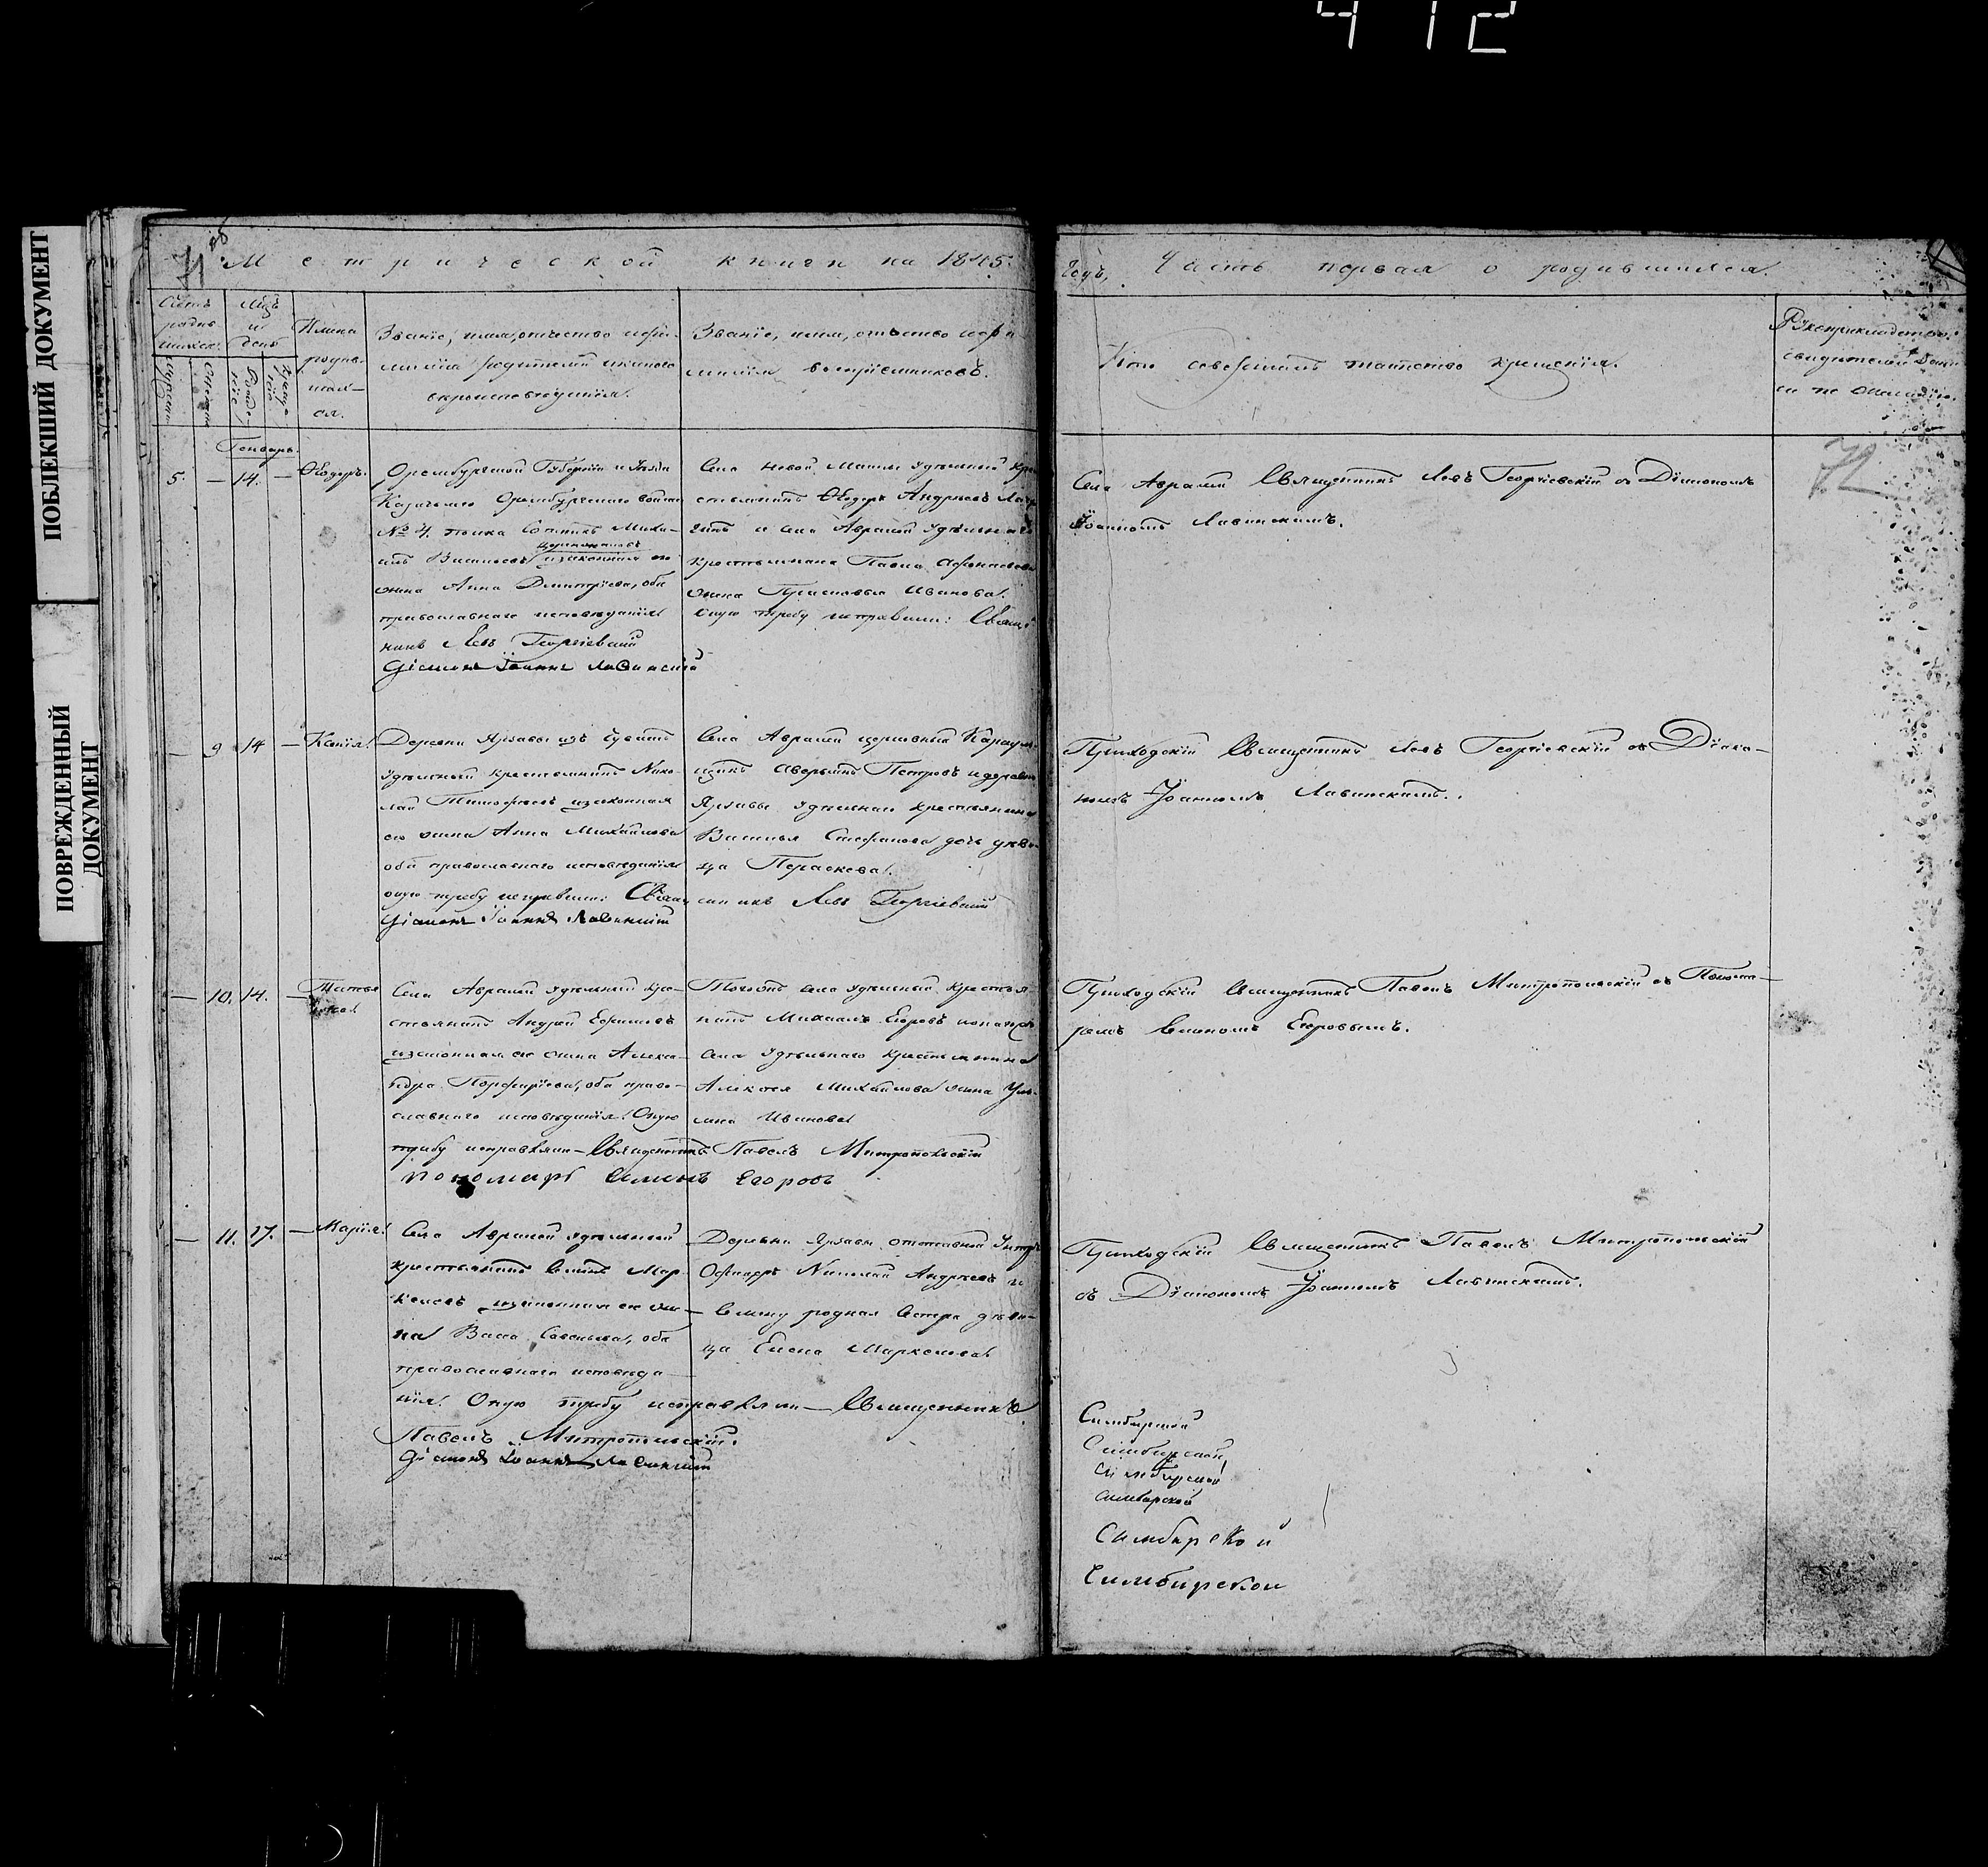 412
ПОБЛЕКШИЙ ДОКУМЕНТ
ПОВРЕЖДЕННЫЙ
ДОКУМЕНТ
71 об
Метрической книги на 1845.
Годъ, Часть первая о родившихся.
Счетъ
родив
шихся.
Мцъ
и
день
Имена
родив-
ших-
ся.
Званіе, имя, отчество и фа-
милія родителей и какого
вероисповеданія.
Званіе, имя, отчество и фа
милія воспріемниковъ.
Кто совершалъ таинство крещенія.
Рукоприкладство
свидетелей
по желанію.
72
Генварь.
5. — 14. — Ѳеодоръ.
Оренбургской Губерніи и Уезда
Казачьяго Оренбургскаго войска
№ 4. полка Сотникъ Миха-
илъ Васильевъ и законная его
жена Анна Димитріева, оба
православнаго исповеданія
никъ Левъ Георгіевскій
Діаконъ Іоаннъ Лавинскій
Села Новой удельный кре
стьянинъ Ѳеодоръ Андреевъ
и села Авралей удельнаго
крестьянина Павла
жена Ивановa.
Оную требу исправили: Свящ
Села Авралей Священникъ Левъ Георгіевскій съ Діакономъ
Іоанномъ Лавинскимъ.
— 9 14 — Ксенія.
Деревни изъ
удельный крестьянинъ Нико-
лай Тимофеевъ и законная
его жена Анна Михайлова
оба православнаго исповеданія
оную требу исправили: Священникъ Левъ Георгіевскій
Діаконъ Іоаннъ Лавинскій
Села Авралей церковный Караул-
щикъ Аверьянъ Петровъ и деревни
удельнаго крестьянина
Василья Стефанова дочь деви-
ца Параскева.
Приходскій Священникъ Левъ Георгіевскій съ Діако-
номъ Іоанномъ Лавинскимъ.
— 10. 14. — Татья
на
Села Авралей удельный кре-
стьянинъ Андрей Ефимовъ
и законная его жена Алекса-
ндра Порфиріева, оба право-
славнаго исповеданія. Оную
требу исправляли — Священникъ Павелъ Митропольскій
пономарь Симонъ Егоровъ
Тогожъ села удельный крестья-
нинъ Михаилъ Егоровъ и
села удельнаго крестьянина
Алексея Михайлова жена Уль-
яна Иванова
Приходскій Священникъ Павелъ Митропольскій съ Понома-
ремъ Симономъ Егоровымъ.
— 11. 17. — Марія.
Села Авралей удельный
крестьянинъ Мар
келовъ и законная его же-
на Васса Савельева, оба
православнаго исповеда-
нія. Оную требу исправляли — Священникъ
Павелъ Митропольскій.
Діаконъ Іоаннъ Лавинскій
Деревни отставной Унтеръ
Офицеръ Николай Андреевъ и
родная сестра деви-
ца Елена Маркелова
Приходскій Священникъ Павелъ Митропольскій
съ Діакономъ Іоанномъ Лавинскимъ.
Симбирской
Симбирской
Симбирской
Симбирской
Симбирской
Симбирской